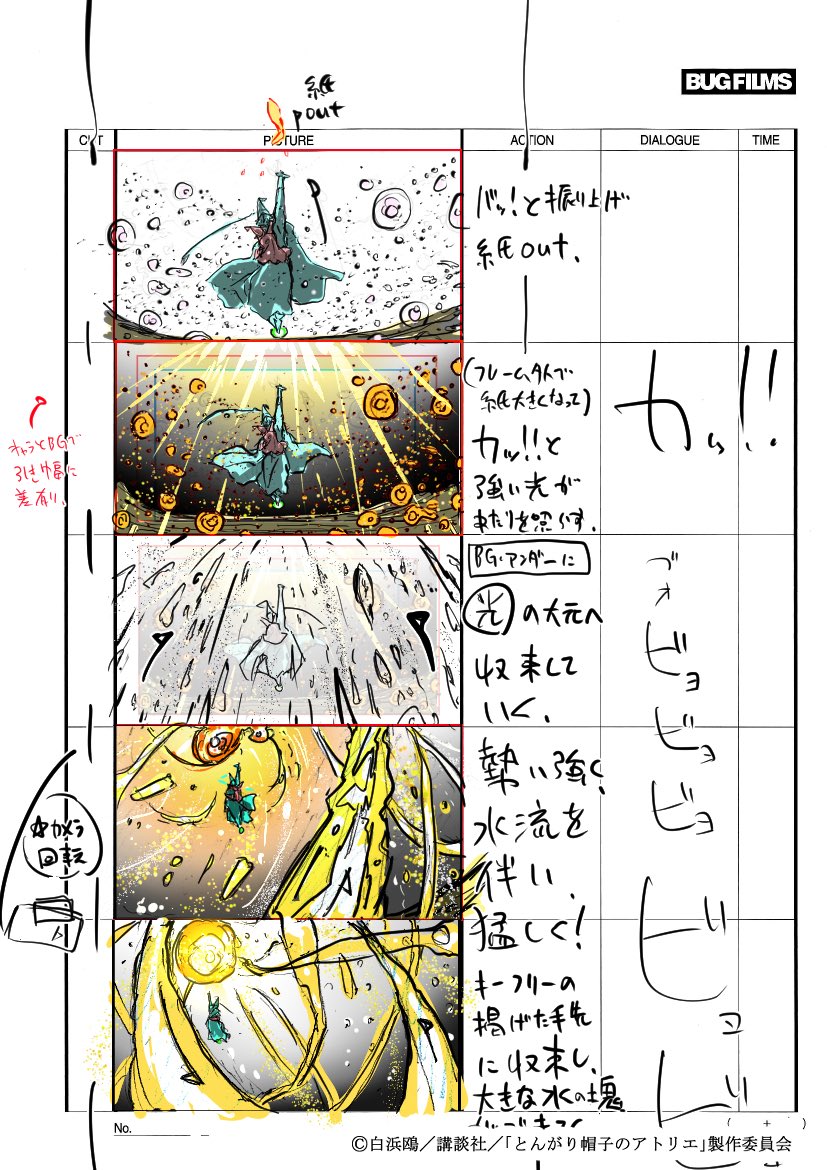 BUG FILMS
紙
pout
CUT
PICTURE
ACTION
DIALOGUE
TIME
バッ!と振り上げ
紙out.
(フレーム外で
紙大きくなって)
カッ!!と
強い光が
あたりを照らす.
カッ!!
キャラとBGで
引き幅に
差有り.
BG・アンダーに
光の大元へ
収束して
いく.
ブォ
ビョ
ビョ
ビョ
勢い強く
水流を
伴い、
猛しく!
カメラ
回転
キーフリーの
掲げた手先
に収束し、
大きな水の塊
ビョ
ビ
No.
( + )
©白浜鴎/講談社/「とんがり帽子のアトリエ」製作委員会